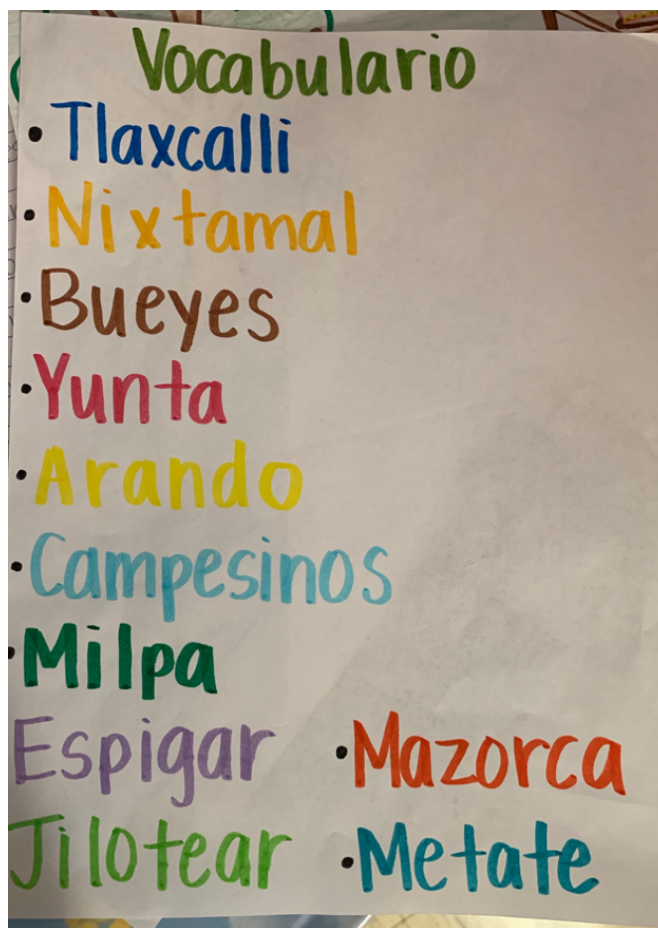 Vocabulario
• Tlaxcalli
• Nixtamal
• Bueyes
• Yunta
• Arando
• Campesinos
• Milpa
Espigar • Mazorca
Jilotear • Metate